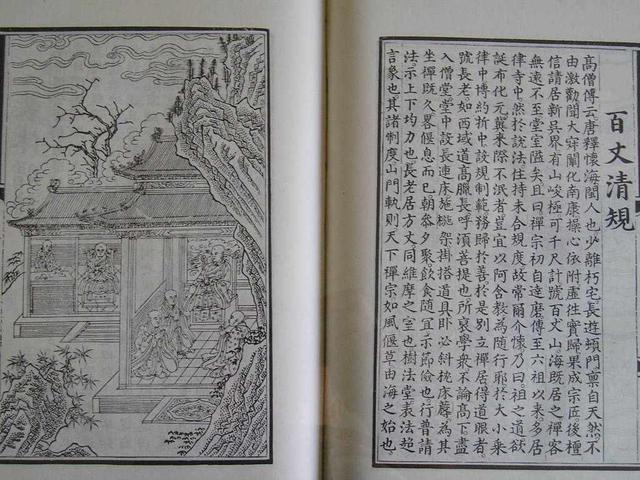 百丈清規
高僧傳云唐釋懷海閩人也少離朽宅長遊頓門稟自天然不
由激勸聞大寂闡化南康操心依附虛往實歸果成宗匠後檀
信請居新吳界有山峻極可千尺計號百丈山海既居之禪客
無遠不至堂室隘矣且曰禪宗初自達磨傳至六祖以來多居
律寺中然於說法住持未合規度故常爾介懷乃曰祖之道欲
誕布化元冀來際不泯者豈宜以阿含教為隨行耶於大小乘
律中博約折中設規制範務歸於善於是別立禪居得道眼者
號長老如西域道高臘長呼須菩提也所裒學衆不論高下盡
入僧堂堂中設長連床施椸架掛搭道具臥必斜枕床脣為其
坐禪既久畧偃息而已朝參夕聚飲食隨宜示節儉也行普請
法示上下均力也長老居方丈同維摩之室也樹法堂表法超
言象也其諸制度山門軌則天下禪宗如風偃草由海之始也